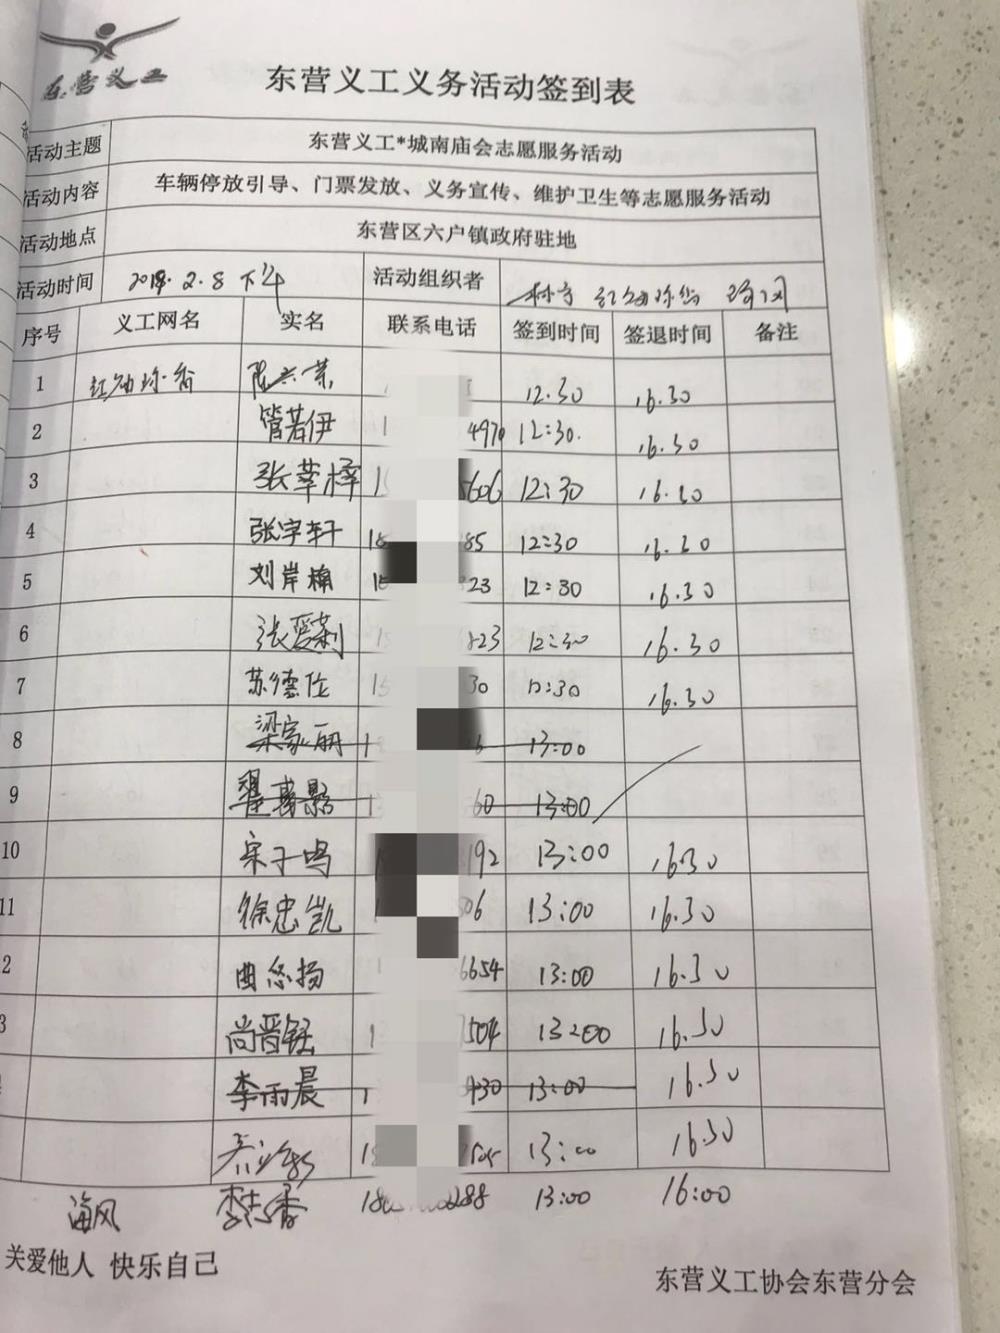 东营义工
东营义工义务活动签到表
活动主题 东营义工*城南庙会志愿服务活动
活动内容 车辆停放引导、门票发放、义务宣传、维护卫生等志愿服务活动
活动地点 东营区六户镇政府驻地
活动时间 2019.2.8下午 活动组织者
序号 义工网名 实名 联系电话 签到时间 签退时间 备注
1 12.30 16.30
2 管若伊 1 4970 12:30. 16.30
3 张莘梓 1 5606 12:30 16.30
4 张宇轩 18 85 12:30 16.30
5 刘岸楠 15 323 12:30 16.30
6 张爱莉 15 823 12:30 16.30
7 苏德佐 15 30 12:30 16.30
8 梁家丽 1 6 13:00
9 1 60 13:00
10 宋子鸣 1 192 13:00 16.30
11 徐忠凯 1 506 13:00 16.30
2 曲悠扬 1 6654 13:00 16.30
3 尚晋钰 1 7504 13:00 16.30
李雨晨 1 430 13:00 16.30
18 13:00 16.30
海风 李志香 18 288 13:00 16:00
关爱他人 快乐自己
东营义工协会东营分会